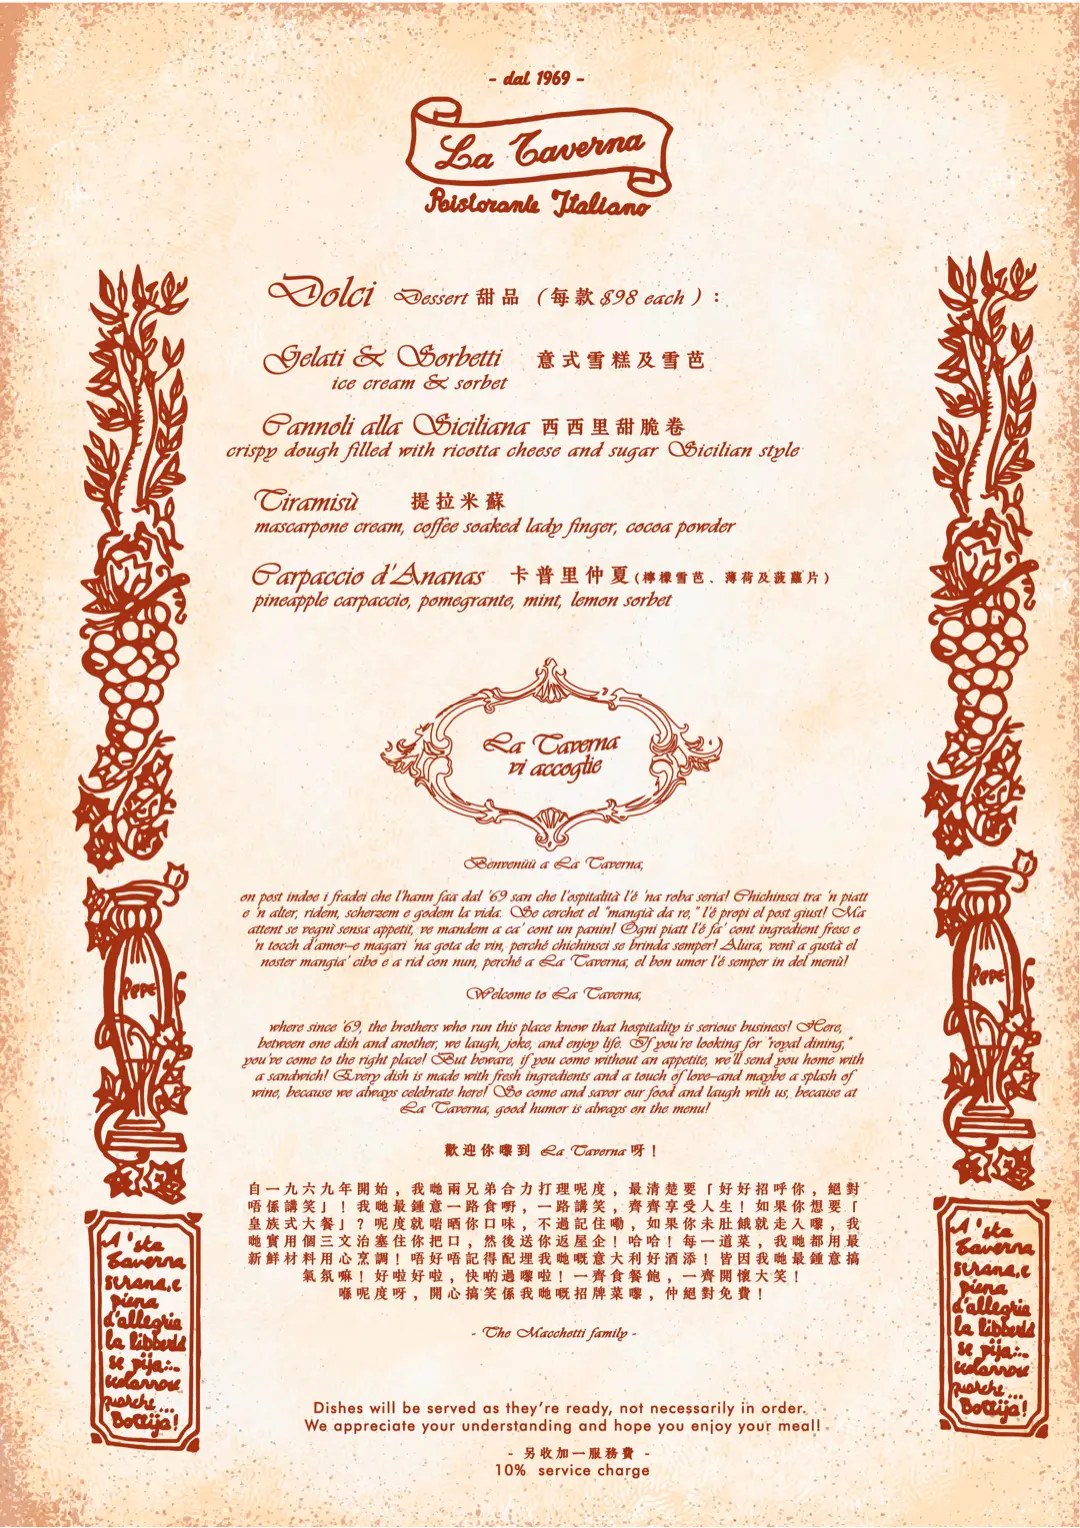 - dal 1969 -
La Taverna
Ristorante Italiano
Dolci Dessert 甜品 （每款 $98 each）：
Gelati & Sorbetti 意式雪糕及雪芭
ice cream & sorbet
Cannoli alla Siciliana 西西里甜脆卷
crispy dough filled with ricotta cheese and sugar Sicilian style
Tiramisù 提拉米蘇
mascarpone cream, coffee soaked lady finger, cocoa powder
Carpaccio d'Ananas 卡普里仲夏(檸檬雪芭、薄荷及菠蘿片)
pineapple carpaccio, pomegrante, mint, lemon sorbet
La Taverna
vi accoglie
Benvenüü a La Taverna,
on post indoe i fradei che l'hann faa dal '69 san che l'ospitalità l'é 'na roba seria! Chichinsci tra 'n piatt
e 'n alter, ridem, scherzem e godem la vida. Se cerchet el "mangià da re," l'é propi el post giust! Ma
attent se vegnì sensa appetit, ve mandem a ca' cont un panin! Ogni piatt l'é fa' cont ingredient fresc e
'n tocch d'amor—e magari 'na gota de vin, perché chichinsci se brinda semper! Alura, venì a gustà el
noster mangia' cibo e a rid con nun, perché a La Taverna, el bon umor l'é semper in del menù!
Welcome to La Taverna,
where since '69, the brothers who run this place know that hospitality is serious business! Here,
between one dish and another, we laugh, joke, and enjoy life. If you're looking for "royal dining,"
you've come to the right place! But beware, if you come without an appetite, we'll send you home with
a sandwich! Every dish is made with fresh ingredients and a touch of love—and maybe a splash of
wine, because we always celebrate here! So come and savor our food and laugh with us, because at
La Taverna, good humor is always on the menu!
歡迎你嚟到 La Taverna 呀！
自一九六九年開始，我哋兩兄弟合力打理呢度，最清楚要「好好招呼你，絕對
唔係講笑」！我哋最鍾意一路食嘢，一路講笑，齊齊享受人生！如果你想要「
皇族式大餐」？呢度就啱晒你口味，不過記住嘞，如果你未肚餓就走入嚟，我
哋實用個三文治塞住你把口，然後送你返屋企！哈哈！每一道菜，我哋都用最
新鮮材料用心烹調！唔好唔記得配埋我哋嘅意大利好酒添！皆因我哋最鍾意搞
氣氛嘛！好啦好啦，快啲過嚟啦！一齊食餐飽，一齊開懷大笑！
喺呢度呀，開心搞笑係我哋嘅招牌菜嚟，仲絕對免費！
- The Macchetti family -
A 'sta
Taverna
serana,e
piena
d'allegria
la libbertà
se pija:..
volannose
puarche...
Bottija!
PEPE
A 'sta
Taverna
serana,e
piena
d'allegria
la libbertà
se pija:..
volannose
puarche...
Bottija!
PEPE
Dishes will be served as they're ready, not necessarily in order.
We appreciate your understanding and hope you enjoy your meal!
- 另收加一服務費 -
10% service charge